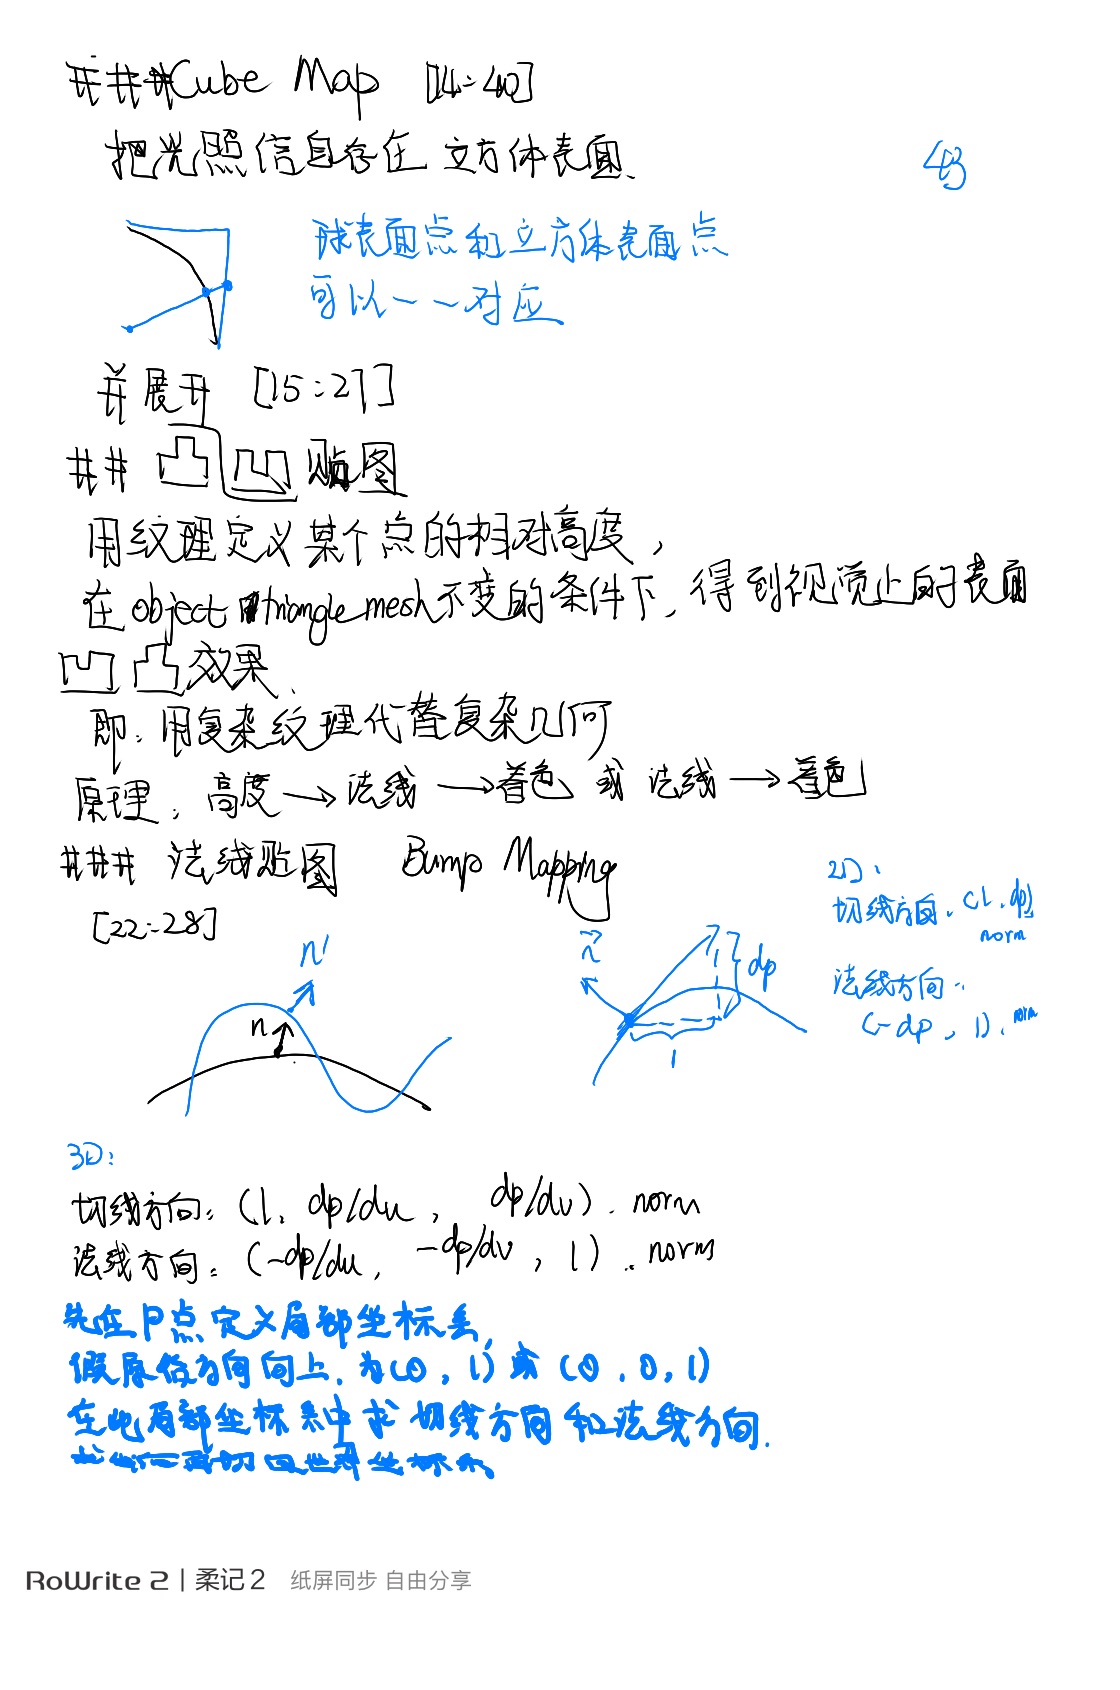 ###Cube Map [14:40]
把光照信息存在立方体表面.
43
球表面点和立方体表面点
可以一一对应
并展开 [15:27]
## 凸凹贴图
用纹理定义某个点的相对高度,
在object triangle mesh不变的条件下, 得到视觉上的表面
凹凸效果.
即: 用复杂纹理代替复杂几何
原理: 高度→法线→着色 或 法线→着色
### 法线贴图 Bump Mapping
[22:28]
2D:
切线方向. (1, dp).
norm
法线方向:
(-dp, 1). norm
n'
n
n
dp
1
3D:
切线方向: (1, dp/du, dp/dv). norm
法线方向: (-dp/du, -dp/dv, 1). norm
先在P点定义局部坐标系,
假原信方向向上. 为(0, 1)或(0, 0, 1)
在此局部坐标系中求切线方向和法线方向.
RoWrite 2 | 柔记2 纸屏同步 自由分享